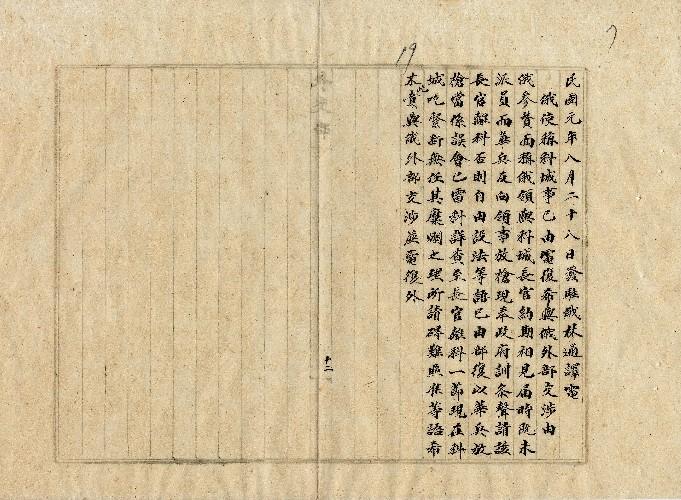 19
民國元年八月二十八日發駐俄林通譯電
俄使稱科城事已由電復希與俄外部交涉由
俄參贊面稱俄領與科城長官約期相見屆時既未
派員而華兵反向領事放槍現奉政府訓条聲請該
長官離科否則自由設法等語已由部復以華兵放
槍當係誤會已電科詳查至長官離科一節現在科
城吃緊斷無任其糜爛之理所請碍難照准等語希
本此意與俄外部交涉並電復外
十二